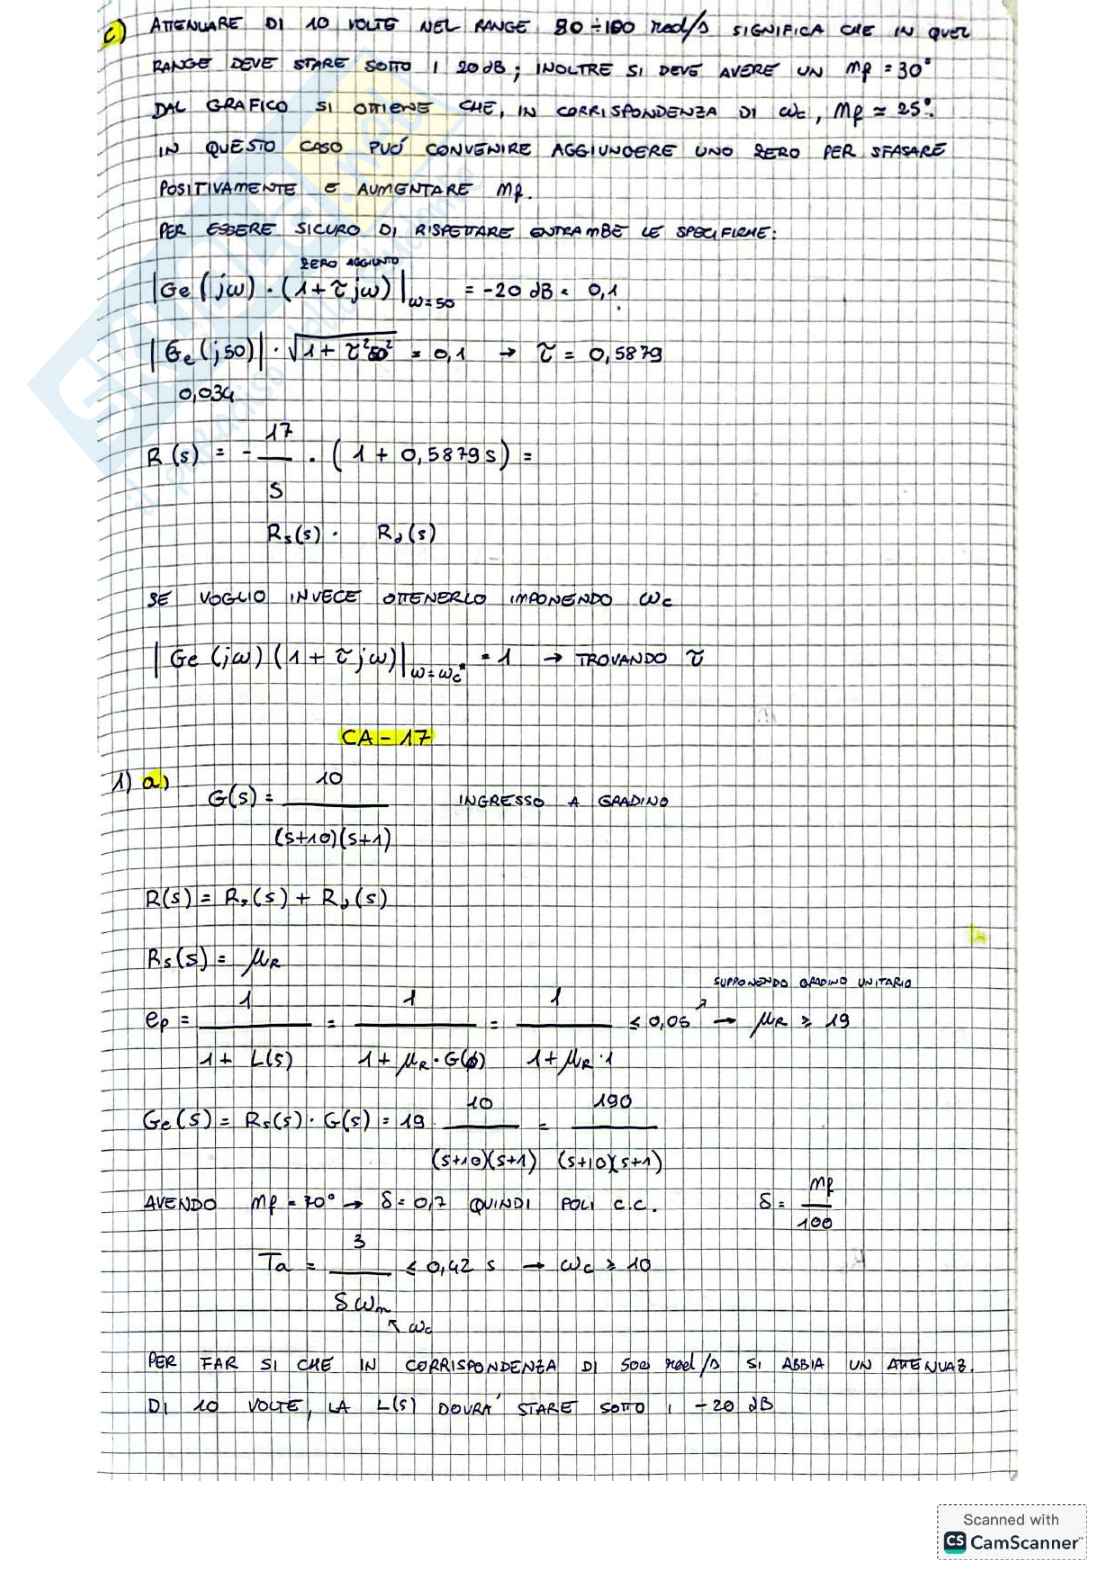 c) ATTENUARE DI 10 VOLTE NEL RANGE 80÷100 rad/s SIGNIFICA CHE IN QUEL
RANGE DEVE STARE SOTTO I 20 dB; INOLTRE SI DEVE AVERE UN Mφ = 30°
DAL GRAFICO SI OTTIENE CHE, IN CORRISPONDENZA DI ωc, Mφ ≃ 25°.
IN QUESTO CASO PUÒ CONVENIRE AGGIUNGERE UNO ZERO PER SFASARE
POSITIVAMENTE E AUMENTARE Mφ.
PER ESSERE SICURO DI RISPETTARE ENTRAMBE LE SPECIFICHE:
ZERO AGGIUNTO
|Ge(jω)·(1+τjω)|ω=50 = -20 dB = 0,1
|Ge(j50)|·√(1+τ²50²) = 0,1 → τ = 0,5879
0,034
R(s) = - 17/s · (1 + 0,5879s) =
Rs(s) · Rd(s)
SE VOGLIO INVECE OTTENERLO IMPONENDO ωc
|Ge(jω)(1+τjω)|ω=ωc* = 1 → TROVANDO τ
CA-17
1) a) G(s) = 10/((s+10)(s+1)) INGRESSO A GRADINO
R(s) = Rs(s) + Rd(s)
Rs(s) = μR
SUPPONENDO GRADINO UNITARIO
ep = 1/(1+L(s)) = 1/(1+μR·G(0)) = 1/(1+μR·1) ≤ 0,05 → μR ≥ 19
Ge(s) = Rs(s)·G(s) = 19 · 10/((s+10)(s+1)) = 190/((s+10)(s+1))
AVENDO Mφ = 70° → δ = 0,7 QUINDI POLI C.C. δ = Mφ/100
Ta = 3/(δωn) ≤ 0,42 s → ωc ≥ 10
↖ ωc
PER FAR SI CHE IN CORRISPONDENZA DI 500 rad/s SI ABBIA UN ATTENUAZ.
DI 10 VOLTE, LA L(s) DOVRA' STARE SOTTO I -20 dB
Scanned with
CS CamScanner